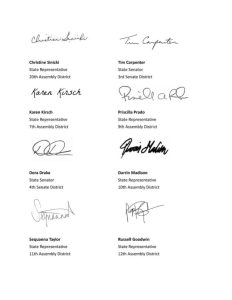 Christine Sinicki
Tim Carpenter
Christine Sinicki
Tim Carpenter
State Representative
State Senator
20th Assembly District
3rd Senate District
Karen Kirsch
Karen Kirsch
Priscilla Prado
State Representative
State Representative
7th Assembly District
9th Assembly District
Dora Drake
Darrin Madison
State Senator
State Representative
4th Senate District
10th Assembly District
Sequanna Taylor
Russell Goodwin
State Representative
State Representative
11th Assembly District
12th Assembly District